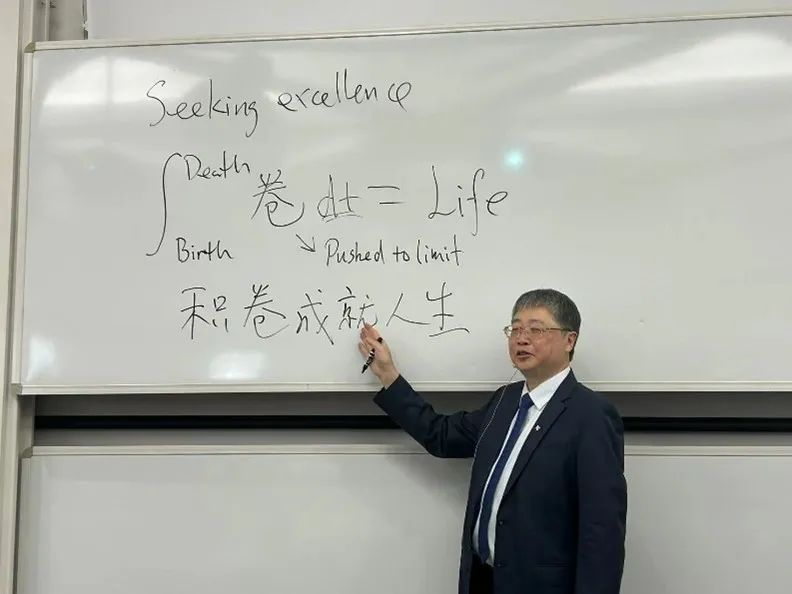 Seeking excellence
∫ Death
卷 dt = Life
Birth
↘ Pushed to limit
积卷成就人生